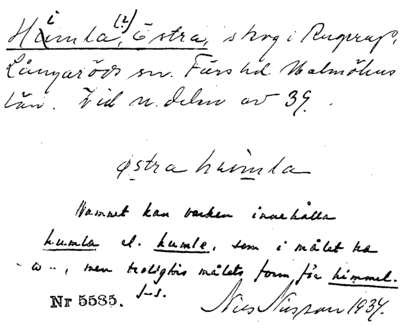 Himla, (?) Östra, skog i
Långaröds sn. Färs hd Malmöhus
län. Vid n. delen av 39.
østra himla
Namnet kan varken innehålla
humla el. humle, som i målet ha
-ω-, men troligtvis målets form för himmel.
Nr 5585. J-s.
1934.